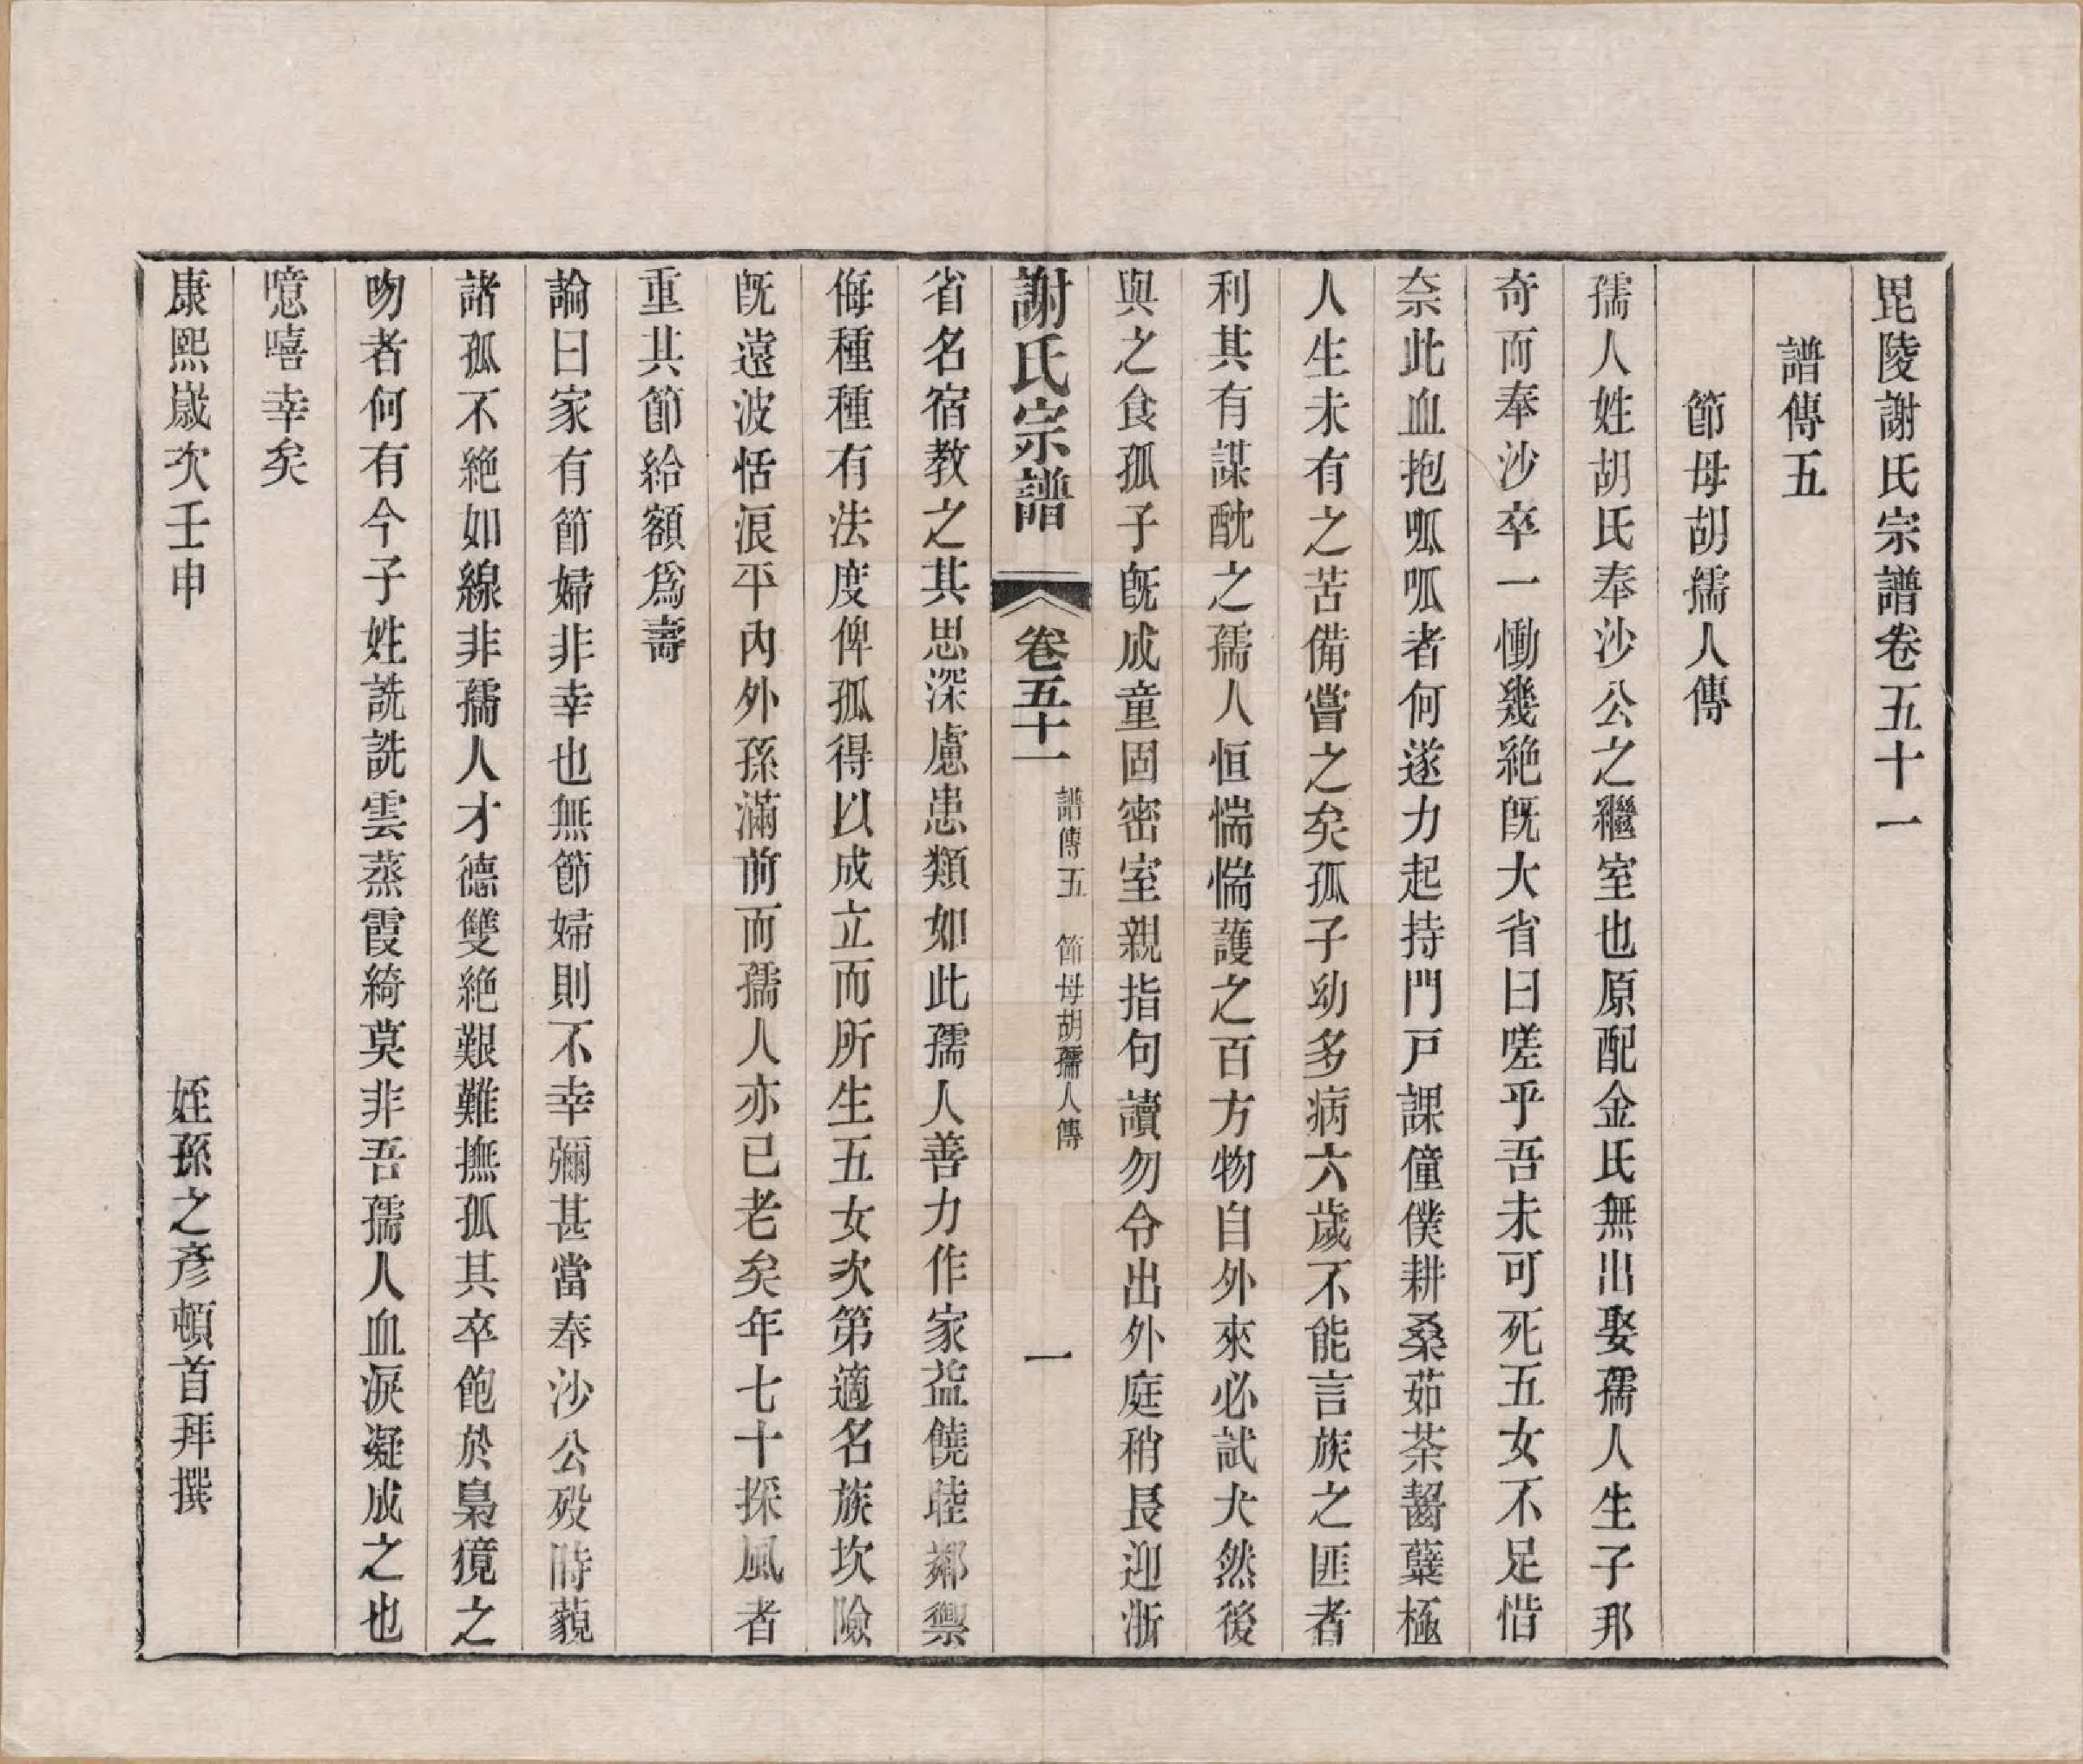 毘陵謝氏宗譜卷五十一
譜傳五
節母胡孺人傳
孺人姓胡氏奉沙公之繼室也原配金氏無出娶孺人生子邦
奇而奉沙卒一慟幾絶旣大省曰嗟乎吾未可死五女不足惜
奈此血抱呱呱者何遂力起持門戸課僮僕耕桑茹荼齧蘗極
人生未有之苦備嘗之矣孤子幼多病六歲不能言族之匪者
利其有謀酖之孺人恒惴惴護之百方物自外來必試犬然後
與之食孤子旣成童固密室親指句讀勿令出外庭稍長迎浙
謝氏宗譜 卷五十一 譜傳五 節母胡孺人傳 一
省名宿教之其思深慮患類如此孺人善力作家益饒睦鄰禦
侮種種有法度俾孤得以成立而所生五女次第適名族坎險
旣遠波恬浪平內外孫滿前而孺人亦已老矣年七十採風者
重其節給額爲壽
論曰家有節婦非幸也無節婦則不幸彌甚當奉沙公歿時藐
諸孤不絶如線非孺人才德雙絶艱難撫孤其卒飽於梟獍之
吻者何有今子姓詵詵雲蒸霞綺莫非吾孺人血淚凝成之也
噫嘻幸矣
康熙歲次壬申 姪孫之彥頓首拜撰